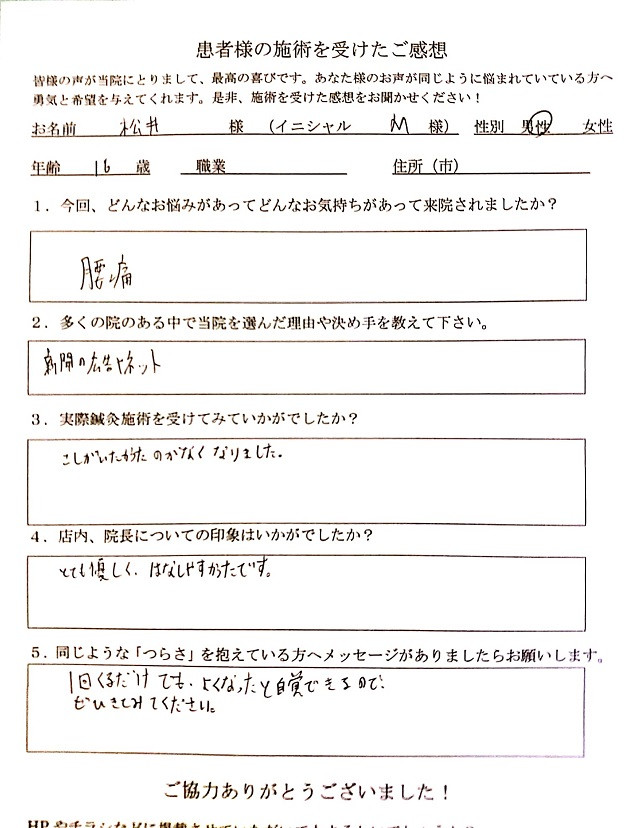 患者様の施術を受けたご感想
皆様の声が当院にとりまして、最高の喜びです。あなた様のお声が同じように悩まれていている方へ
勇気と希望を与えてくれます。是非、施術を受けた感想をお聞かせください！
お名前 松井 様 （イニシャル M 様） 性別 男性 女性
年齢 16 歳 職業 住所（市）
１．今回、どんなお悩みがあってどんなお気持ちがあって来院されましたか？
腰痛
２．多くの院のある中で当院を選んだ理由や決め手を教えて下さい。
新聞の広告とネット
３．実際鍼灸施術を受けてみていかがでしたか？
こしがいたかったのがなくなりました。
４．店内、院長についての印象はいかがでしたか？
とても優しく、はなしやすかったです。
５．同じような「つらさ」を抱えている方へメッセージがありましたらお願いします。
1回くるだけでも、よくなったと自覚できるので、
ぜひきてみてください。
ご協力ありがとうございました！